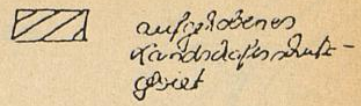 aufgehobenes
Landschaftsschutz-
gebiet